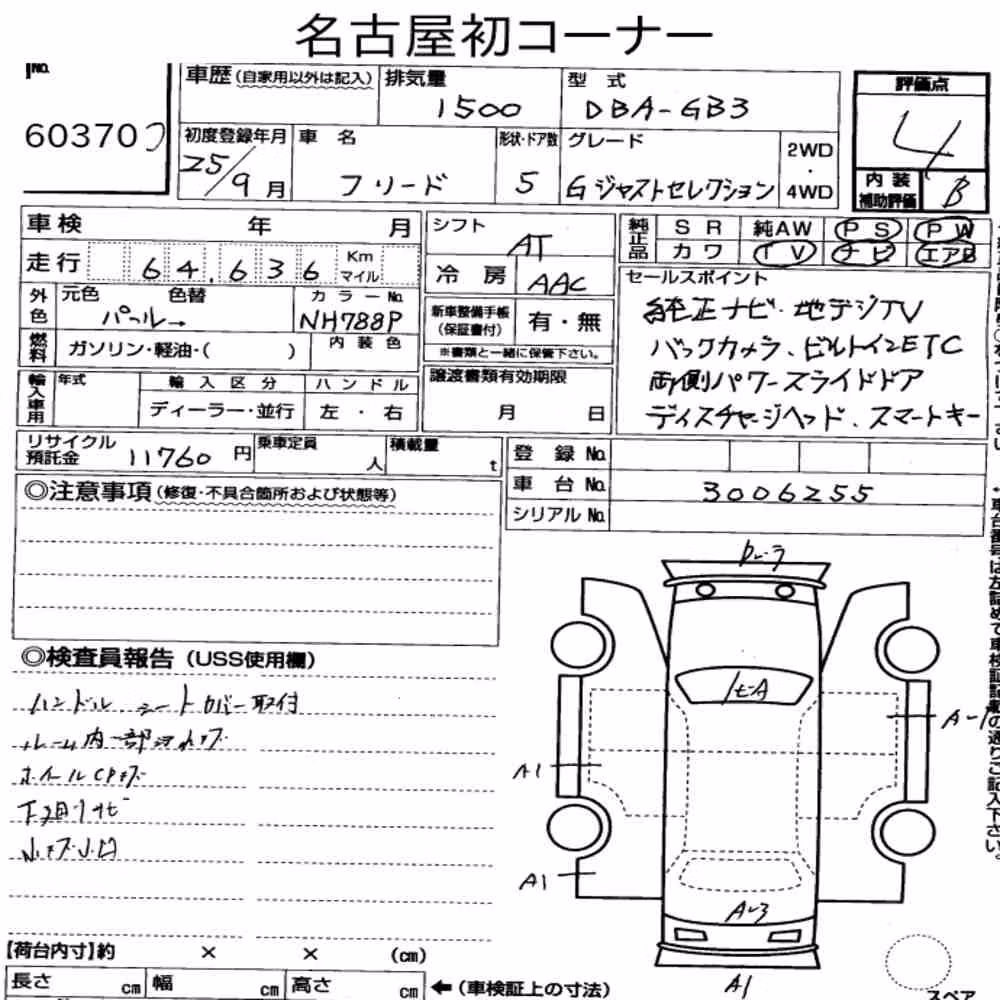 名古屋初コーナー
No.
60370
車歴 (自家用以外は記入)
排気量
1500
型 式
DBA-GB3
評価点
4
内 装
補助評価
B
初度登録年月
25/9月
車 名
フリード
形状・ドア数
5
グレード
Gジャストセレクション
2WD
・
4WD
車検 年 月
走行 64,636 Km
マイル
外色
元色 色替
パール→
カラーNo.
NH788P
燃料
ガソリン・軽油・( )
内 装 色
輸入車用
年式
輸 入 区 分
ディーラー・並行
ハ ン ド ル
左 ・ 右
シフト
AT
冷 房
AAC
新車整備手帳
(保証書付)
有・無
※書類と一緒に保管下さい。
譲渡書類有効期限
月 日
純正品
S R 純AW P S P W
カ ワ T V ナ ビ エアB
セールスポイント
純正ナビ・地デジTV
バックカメラ、ビルトインETC
両側パワースライドドア
ディスチャージヘッド、スマートキー
リサイクル
預託金
11760 円
乗車定員
人
積載量
t
登 録 No.
車 台 No.
3006255
シリアル No.
◎注意事項 (修復・不具合箇所および状態等)
◎検査員報告 (USS使用欄)
ハンドル シートカバー取付
内一部
ホイールCPキズ
下廻りサビ
A1
A1
A1
【荷台内寸】約 × × (cm)
長さ cm 幅 cm 高さ cm
←(車検証上の寸法)
スペア